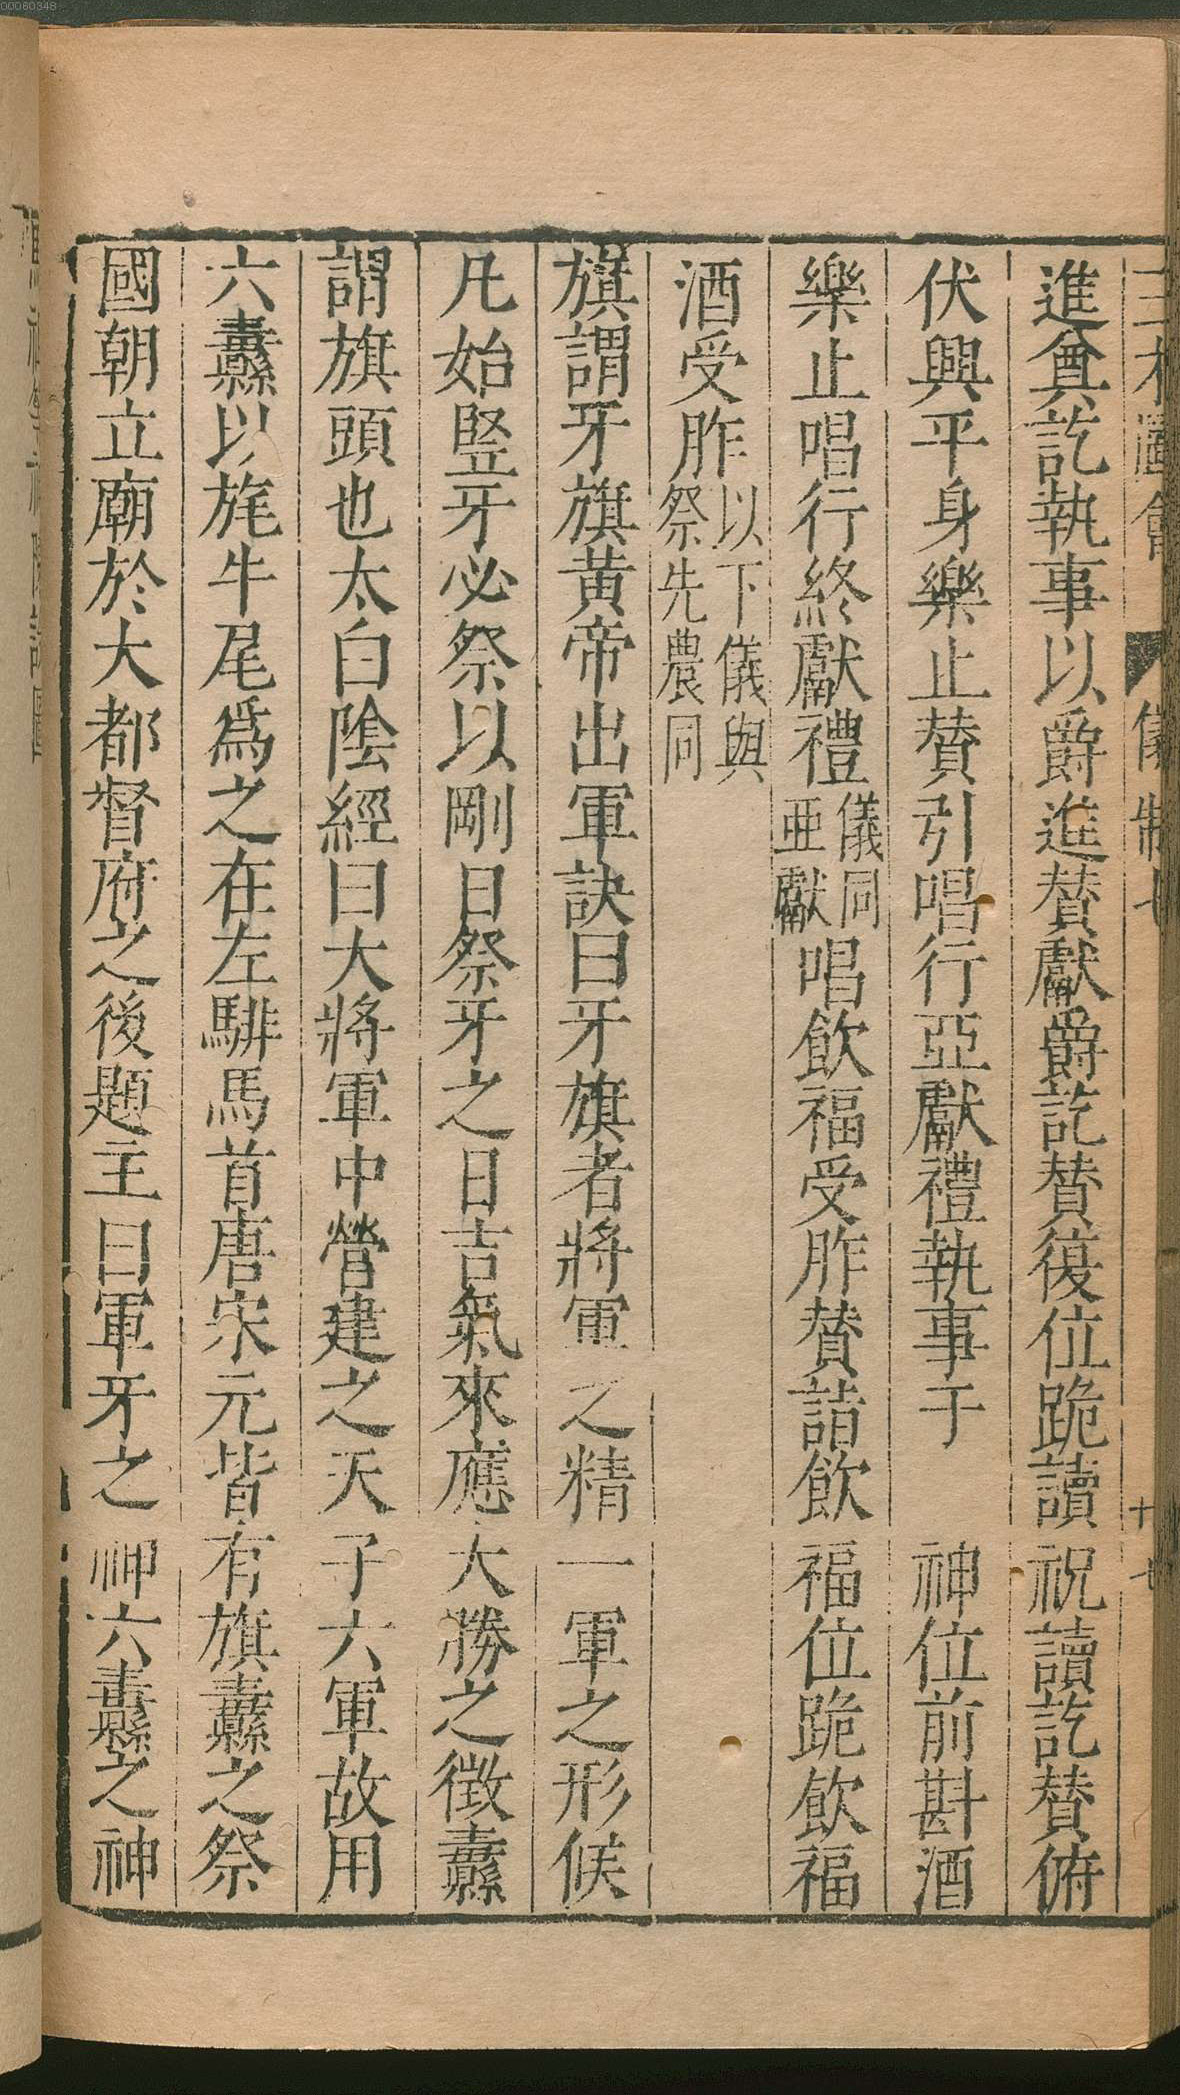 進奠訖執事以爵進贊獻爵訖贊復位跪讀祝讀訖贊俯
伏興平身樂止贊引唱行亞獻禮執事于神位前斟酒
樂止唱行終獻禮儀同亞獻唱飲福受胙贊詣飲福位跪飲福
酒受胙以下儀與祭先農同
旗謂牙旗黃帝出軍訣曰牙旗者將軍之精一軍之形候
凡始竪牙必祭以剛日祭牙之日吉氣來應大勝之徵纛
謂旗頭也太白陰經曰大將軍中營建之天子六軍故用
六纛以旄牛尾爲之在左騑馬首唐宋元皆有旗纛之祭
國朝立廟於大都督府之後題主曰軍牙之神六纛之神
儀制七
十七
00080348